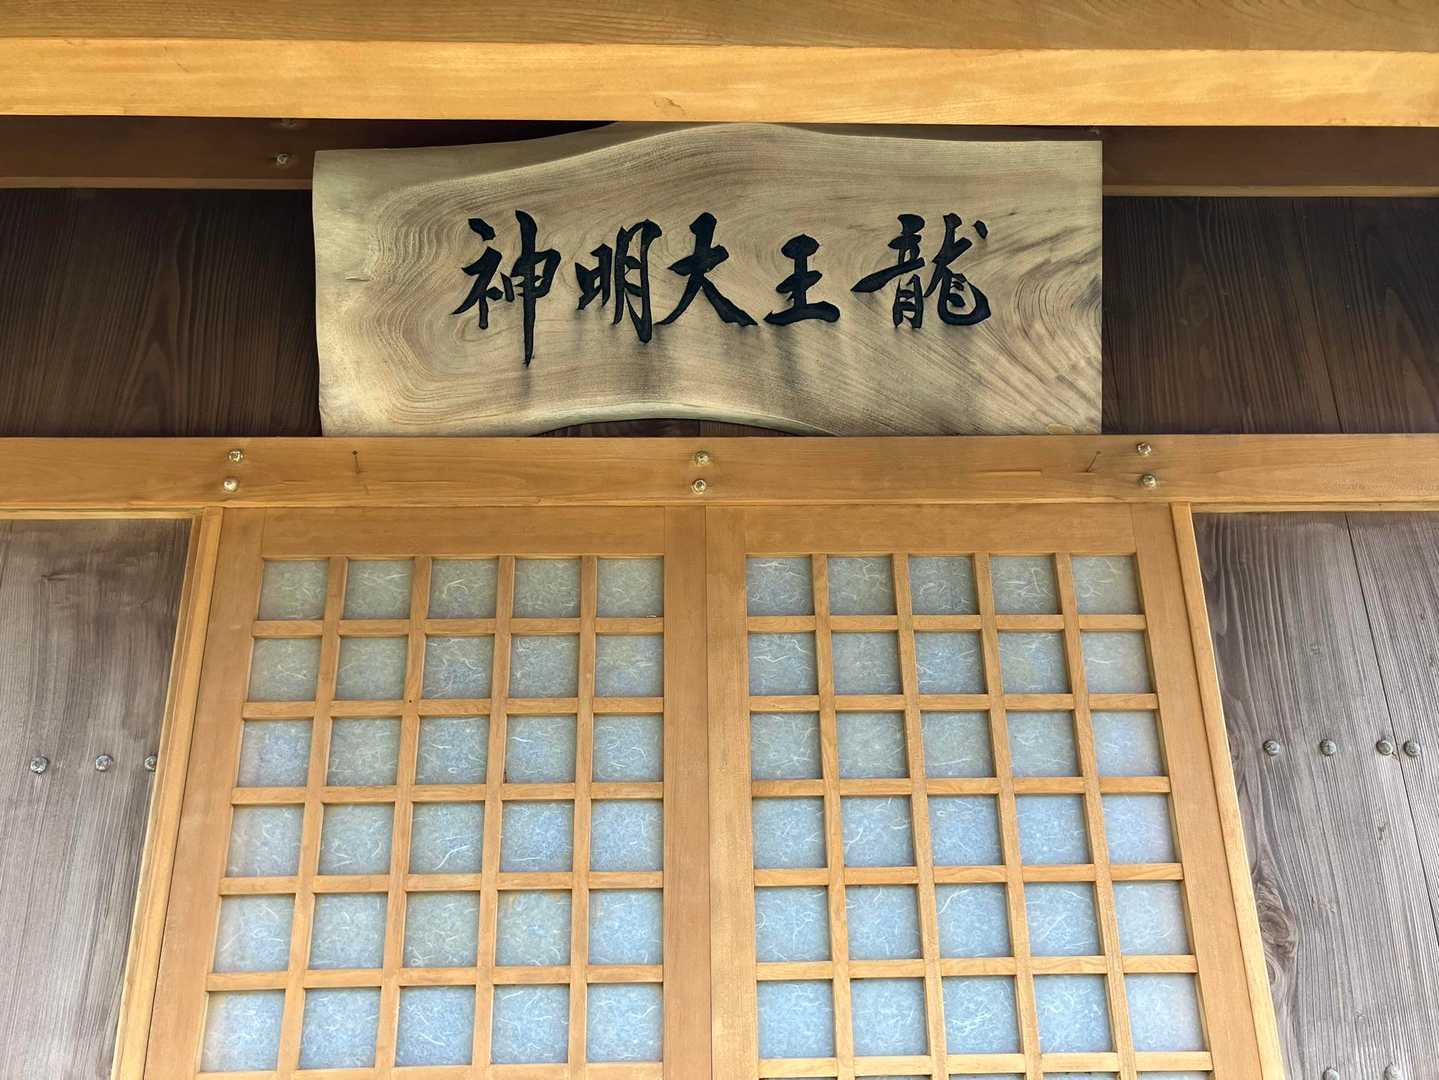 龍王大明神